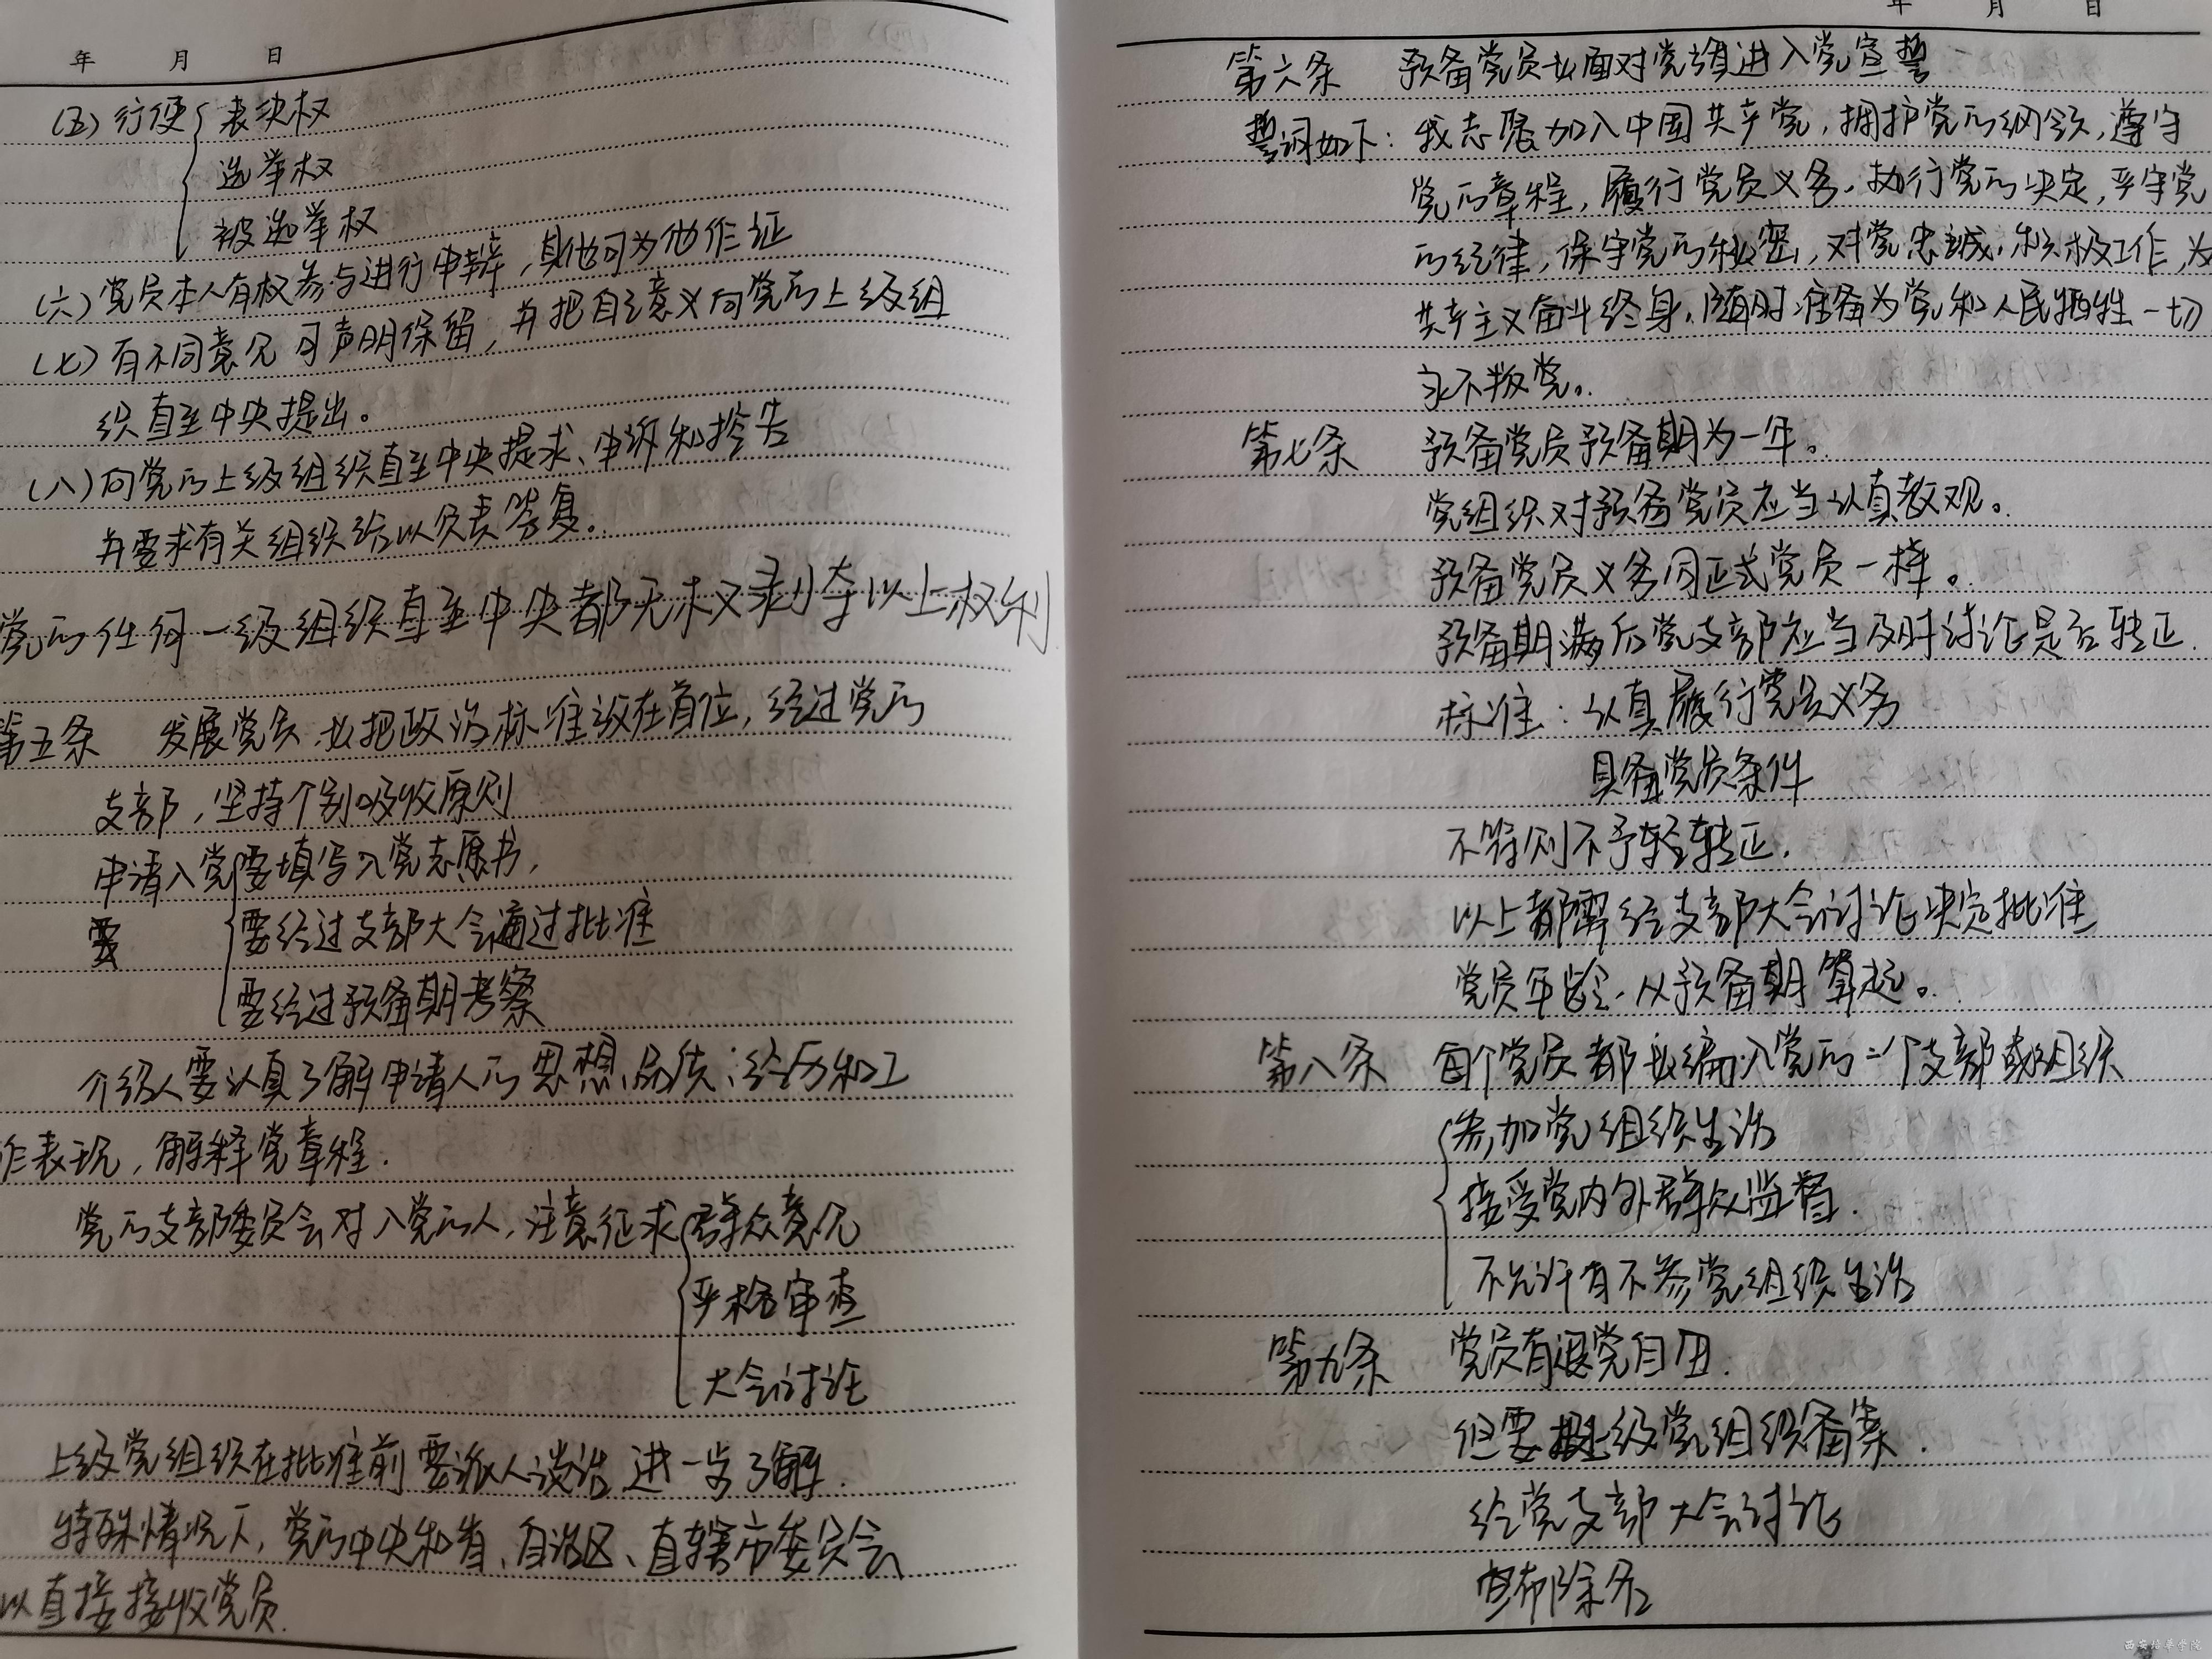 年 月 日
(五)行使 表决权
选举权
被选举权
(六)党员本人有权参与进行申辩,其他可为他作证
(七)有不同意见可声明保留,并把自己意义向党的上级组
织直至中央提出。
(八)向党的上级组织直至中央提求、申诉和控告
并要求有关组织给以负责答复。
党的任何一级组织直至中央都无权剥夺以上权利
第五条 发展党员,必把政治标准放在首位,经过党的
支部,坚持个别吸收原则
申请入党 要填写入党志愿书,
要 要经过支部大会通过批准
要经过预备期考察
介绍人要认真了解申请人的思想、品质、经历和工
作表现,解释党章程.
党的支部委员会对入党的人,注意征求 群众意见
严格审查
大会讨论
上级党组织在批准前要派人谈话 进一步了解.
特殊情况下,党的中央和省、自治区、直辖市委员会
以直接接收党员.
年 月 日
第六条 预备党员必面对党旗进入党宣誓
誓词如下:我志愿加入中国共产党,拥护党的纲领,遵守
党的章程,履行党员义务,执行党的决定,严守党
的纪律,保守党的秘密,对党忠诚,积极工作,为
共产主义奋斗终身,随时准备为党和人民牺牲一切
永不叛党。
第七条 预备党员预备期为一年。
党组织对预备党员应当认真教观。
预备党员义务同正式党员一样。
预备期满后党支部应当及时讨论是否转正.
标准:认真履行党员义务
具备党员条件
不符则不予转正.
以上都需经支部大会讨论决定批准
党员年龄,从预备期算起。
第八条 每个党员都必编入党的一个支部或组织
参加党组织生活
接受党内外群众监督.
不允许有不参党组织生活
第九条 党员有退党自由.
但要上级党组织备案.
经党支部大会讨论
宣布除名
西安培华学院